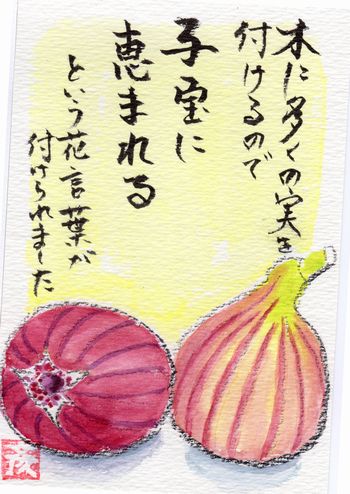 木に多くの実を
付けるので
子宝に
恵まれる
という花言葉が
付けられました